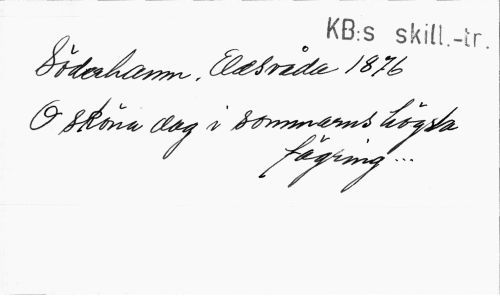 KB:s skill.-tr.
Söderhamn. Eldsvåda 1876
O sköna dag i sommarns högsta
fägring...